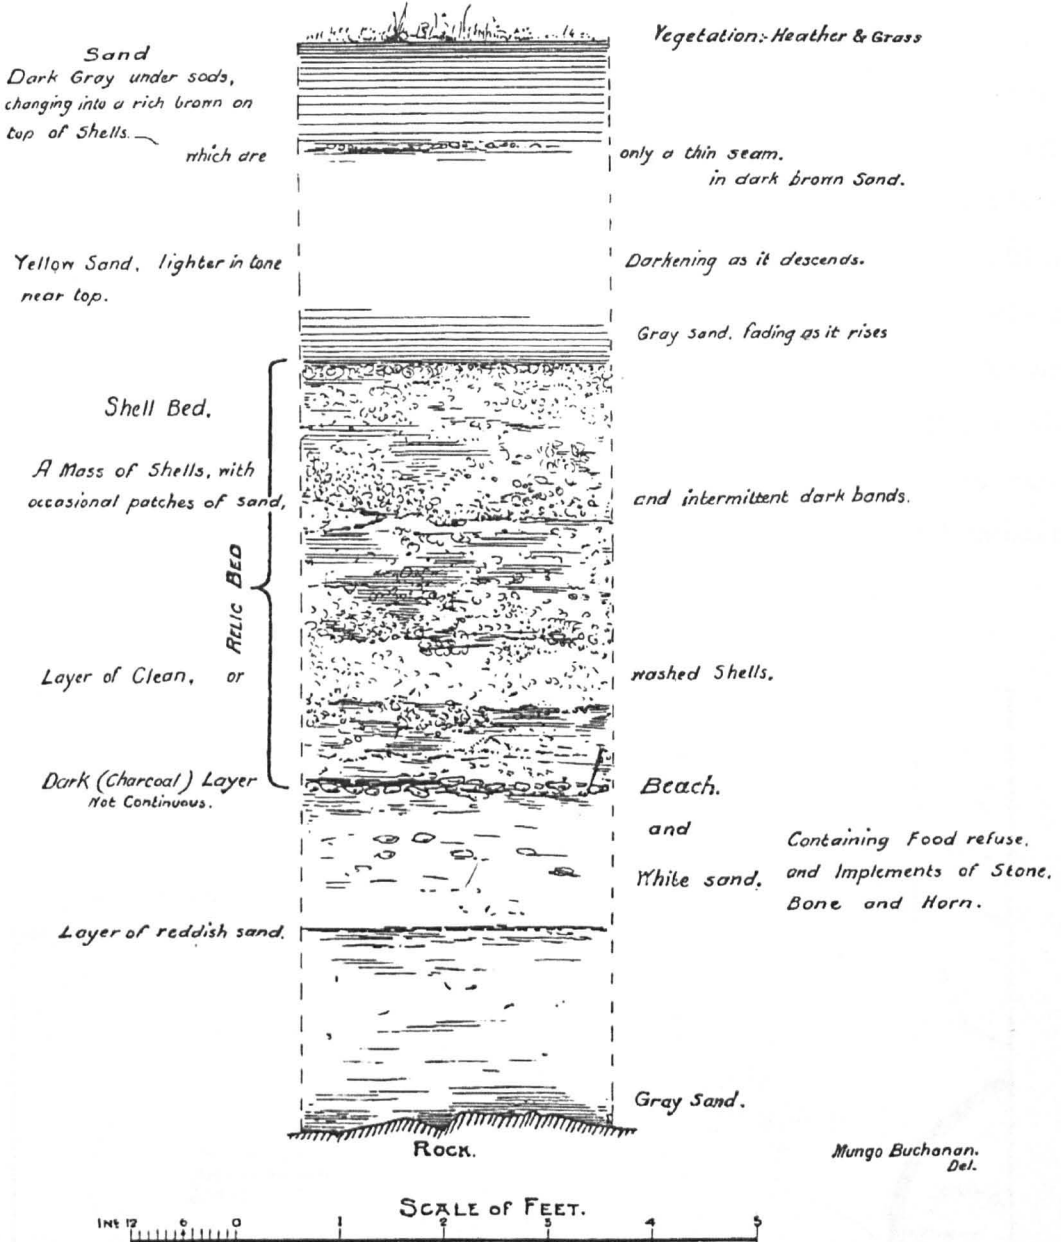 Vegetation:- Heather & Grass
Sand
Dark Gray under sods,
changing into a rich brown on
top of Shells.
which are
only a thin seam.
in dark brown Sand.
Yellow Sand, lighter in tone
near top.
Darkening as it descends.
Gray sand, fading as it rises
Shell Bed.
A Mass of Shells, with
occasional patches of sand,
and intermittent dark bands.
RELIC BED
Layer of Clean, or
washed Shells.
Dark (Charcoal) Layer
Not Continuous.
Beach.
and
White sand.
Containing Food refuse,
and Implements of Stone,
Bone and Horn.
Layer of reddish sand.
Gray Sand.
ROCK.
Mungo Buchanan.
Del.
SCALE of FEET.
INS 12 6 0 1 2 3 4 5